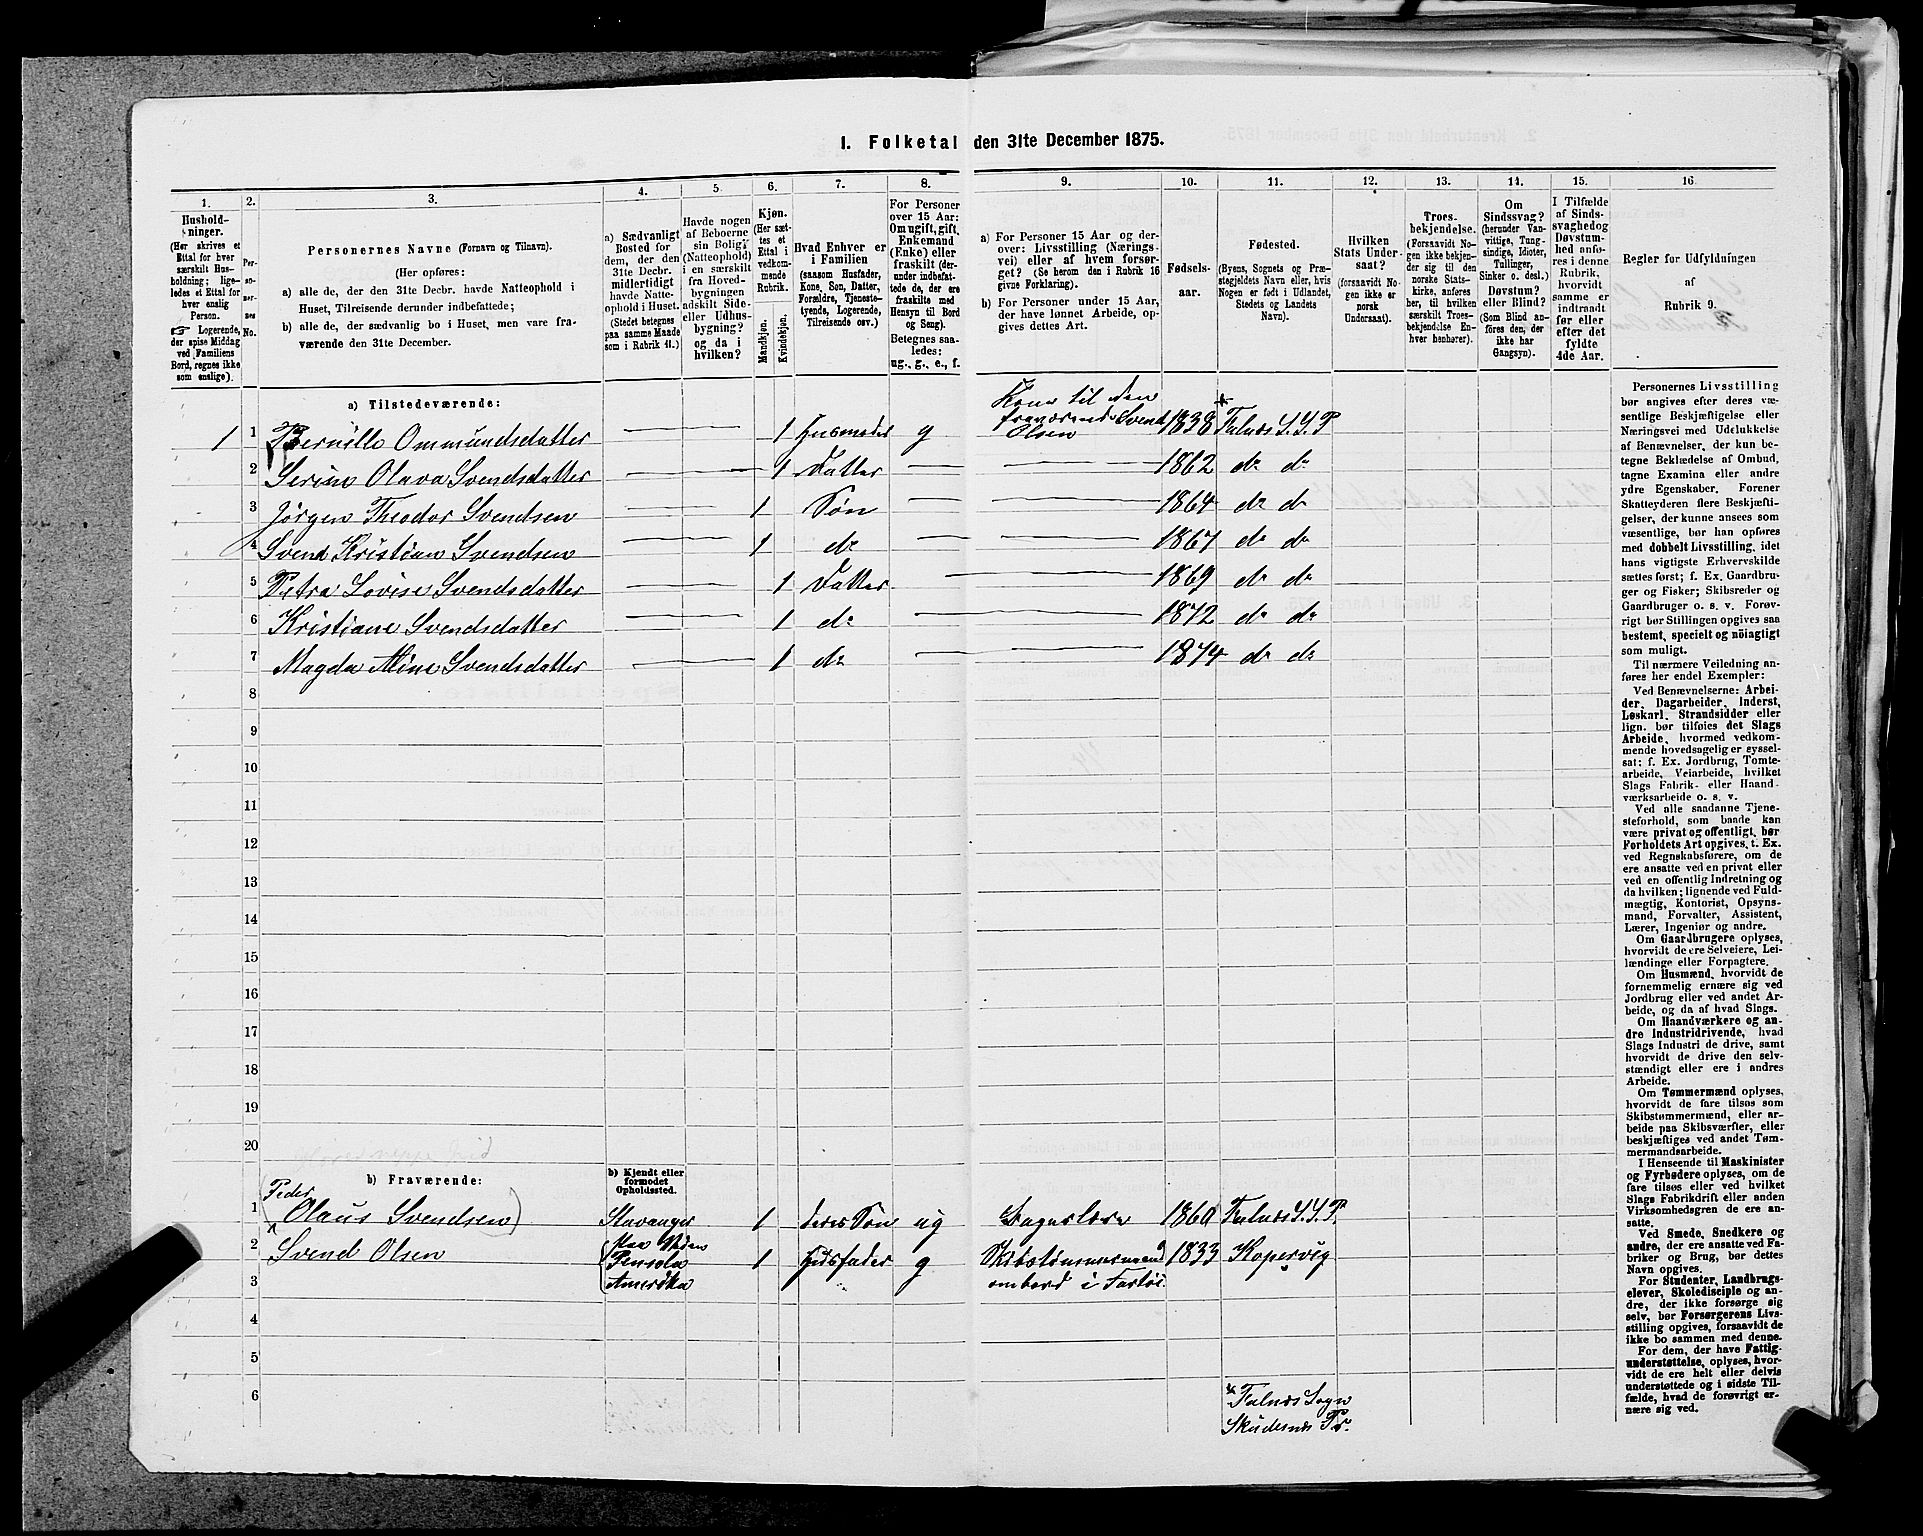 I. Folketal den 31te December 1875.
1. 2. 3. 4. 5. 6. 7. 8. 9. 10. 11. 12. 13. 14. 15. 16.
Hushold-
ninger.
(Her skrives et
Ettal for hver
særskilt Hus-
holdning; lige-
ledes et Ettal for
hver enslig
Person.
☞ Logerende,
der spise Middag
ved Familiens
Bord, regnes ikke
som enslige).
Per-
so-
ner-
nes
No.
Personernes Navne (Fornavn og Tilnavn).
(Her opføres:
a) alle de, der den 31te Decbr. havde Natteophold i
Huset, Tilreisende derunder indbefattede;
b) alle de, der sædvanlig bo i Huset, men vare fra-
værende den 31te December.
a) Sædvanligt
Bosted for
dem, der den
31te Decbr.
midlertidigt
havde Natte-
ophold i Huset.
(Stedet betegnes
paa samme Maade
som i Rubrik 11.)
Havde nogen
af Beboerne
sin Bolig
(Natteophold)
i en særskilt
fra Hoved-
bygningen
adskilt Side-
eller Udhus-
bygning?
og da i
hvilken?
Kjøn.
(Her sæt-
tes et
Ettal i
vedkom-
mende
Rubrik.
Mandkjøn.
Kvindekjøn.
Hvad Enhver er
i Familien
(saasom Husfader,
Kone, Søn, Datter,
Forældre, Tjeneste-
tyende, Logerende,
Tilreisende osv.)
For Personer
over 15 Aar:
Om ugift, gift,
Enkemand
(Enke) eller
fraskilt (der-
under indbefat-
tede de, der ere
fraskilte med
Hensyn til Bord
og Seng).
Betegnes saa-
ledes:
ug., g., e., f.
a) For Personer 15 Aar og der-
over: Livsstilling (Nærings-
vei) eller af hvem forsør-
get? (Se herom den i Rubrik 16
givne Forklaring).
b) For Personer under 15 Aar,
der have lønnet Arbeide, op-
gives dettes Art.
Fødsels-
aar.
Fødested.
(Byens, Sognets og Præ-
stegjeldets Navn eller, hvis
Nogen er født i Udlandet,
Stedets og Landets
Navn).
Hvilken
Stats Under-
saat?
(forsaavidt No-
gen ikke er
norsk
Undersaat).
Troes-
bekjendelse.
(Forsaavidt No-
gen ikke bekjen-
der sig til den
norske Stats-
kirke, anføres
her, til hvilken
særskilt Troes-
bekjendelse En-
hver henhører).
Om
Sindssvag?
(herunder Van-
vittige, Tung-
sindige, Idioter,
Tullinger,
Sinker o. desl.)
Døvstum?
eller Blind?
(Som Blind an-
føres den, der
ikke har
Gangsyn).
I Tilfælde
af Sinds-
svaghed og
Døvstum-
hed anfø-
res i denne
Rubrik,
hvorvidt
samme er
indtraadt
før eller
efter det
fyldte
4de Aar.
Regler for Udfyldningen
af
Rubrik 9.
a) Tilstedeværende:
Kone til den
fraværende Svend
Olsen
1 1 Bernille Ommundsdatter 1 Husmoder g 1838 * Falnes S. S. P
2 Serine Olava Svendsdatter 1 Datter 1862 do do
3 Jørgen Theodor Svendsen 1 Søn 1864 do do
4 Svend Kristian Svendsen 1 do 1867 do do
5 Petra Lovise Svendsdatter 1 Datter 1869 do do
6 Kristiane Svendsdatter 1 do 1872 do do
7 Magda Mine Svendsdatter 1 do 1874 do do
8
9
10
11
12
13
14
15
16
17
18
19
20
b) Fraværende:
b) Kjendt eller
formodet
Opholdssted.
Peder
1 Olaus Svendsen Stavanger 1 deres Søn ug 1860 Falnes S. S. P.
2 Svend Olsen Pensola 1 Husfader g Skibstømmermand 1833 Kopervig
3 Amerika ombord i Fartøi
4
5
6
* Falnes Sogn
Skudesnes Pr.
Personernes Livsstilling
bør angives efter deres væ-
sentlige Beskjæftigelse eller
Næringsvei med Udelukkelse
af Benævnelser, der kun be-
tegne Beklædelse af Ombud,
tagne Examina eller andre
ydre Egenskaber. Forener
Skatteyderen flere Beskjæfti-
gelser, der kunne ansees som
væsentlige, bør han opføres
med dobbelt Livsstilling, idet
hans vigtigste Erhvervskilde
sættes først; f. Ex. Gaardbru-
ger og Fisker; Skibsreder og
Gaardbruger o. s. v. Forøv-
rigt bør Stillingen opgives saa
bestemt, specielt og nöiagtigt
som muligt.
Til nærmere Veiledning an-
føres her endel Exempler:
Ved Benævnelserne: Arbei-
der, Dagarbeider, Inderst,
Løskarl, Strandsidder eller
lign. bør tilføies det Slags
Arbeide, hvormed vedkom-
mende hovedsagelig er syssel-
sat; f. Ex. Jordbrug, Tomte-
arbeide, Veiarbeide, hvilket
Slags Fabrik- eller Haand-
værksarbeide o. s. v.
Ved alle saadanne Tjene-
steforhold, som baade kan
være privat og offentligt, bør
Forholdets Art opgives, t. Ex.
ved Regnskabsførere, om de
ere ansatte ved en privat eller
ved en offentlig Indretning og
da hvilken; lignende ved Fuld-
mægtig, Kontorist, Opsyns-
mand, Forvalter, Assistent,
Lærer, Ingeniør og andre.
Om Gaardbrugere oplyses,
hvorvidt de ere Selveiere, Lei-
lændinge eller Forpagtere.
Om Husmænd, hvorvidt de
fornemmelig ernære sig ved
Jordbrug eller ved andet Ar-
beide, og da af hvad Slags.
Om Haandværkere og an-
dre Industridrivende, hvad
Slags Industri de drive, samt
hvorvidt de drive den selv-
stændigt eller ere i andres
Arbeide.
Om Tømmermænd oplyses,
hvorvidt de fare tilsøs som
Skibstømmermænd, eller ar-
beide paa Skibsværfter, eller
beskjæftiges ved andet Tøm-
mermandsarbeide.
I Henseende til Maskinister
og Fyrbødere oplyses, om de
fare tilsøs eller ved hvilket
Slags Fabrikdrift eller anden
Virksomhedsgren de ere an-
satte.
Ved Smede, Snedkere og
andre, der ere ansatte ved Fa-
briker og Brug, bør dettes
Navn opgives.
For Studenter, Landbrugs-
elever, Skoledisciple og an-
dre, der ikke forsørge sig
selv, bør Forsørgerens Livs-
stilling opgives, forsaavidt de
ikke bo sammen med denne.
For dem, der have Fattig-
understøttelse, oplyses, hvor-
vidt de ere helt eller delvis
understøttede og i sidste Til-
fælde, hvad de forøvrigt er-
nære sig ved.